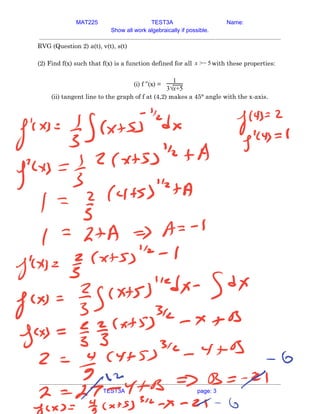 MAT225 TEST3A Name:
Show all work algebraically if possible.
RVG (Question 2) a(t), v(t), s(t)
(2) Find f(x) such that f(x) is a function defined for all x >− 5 with these properties:
(i) f ''(x) = 1/(3√x+5)
(ii) tangent line to the graph of f at (4,2) makes a 45° angle with the x-axis.
f'(x) = 1/3 ∫ (x+5)^-1/2 dx
f(4)=2
f'(4)=1
f'(x) = 1/3 2 (x+5)^1/2 + A
1 = 2/3 (4+5)^1/2 + A
1 = 2+A ⇒ A = -1
f'(x) = 2/3 (x+5)^1/2 - 1
f(x) = 2/3 ∫ (x+5)^1/2 dx - ∫ dx
f(x) = 2/3 2/3 (x+5)^3/2 - x + B
2 = 4/9 (4+5)^3/2 - 4 + B
- 6
12
2 = 27 - 4 + B ⇒ B = -21
TEST3A page: 3
f(x) = 4/9 (x+5)^3/2 - x - 21 - 6